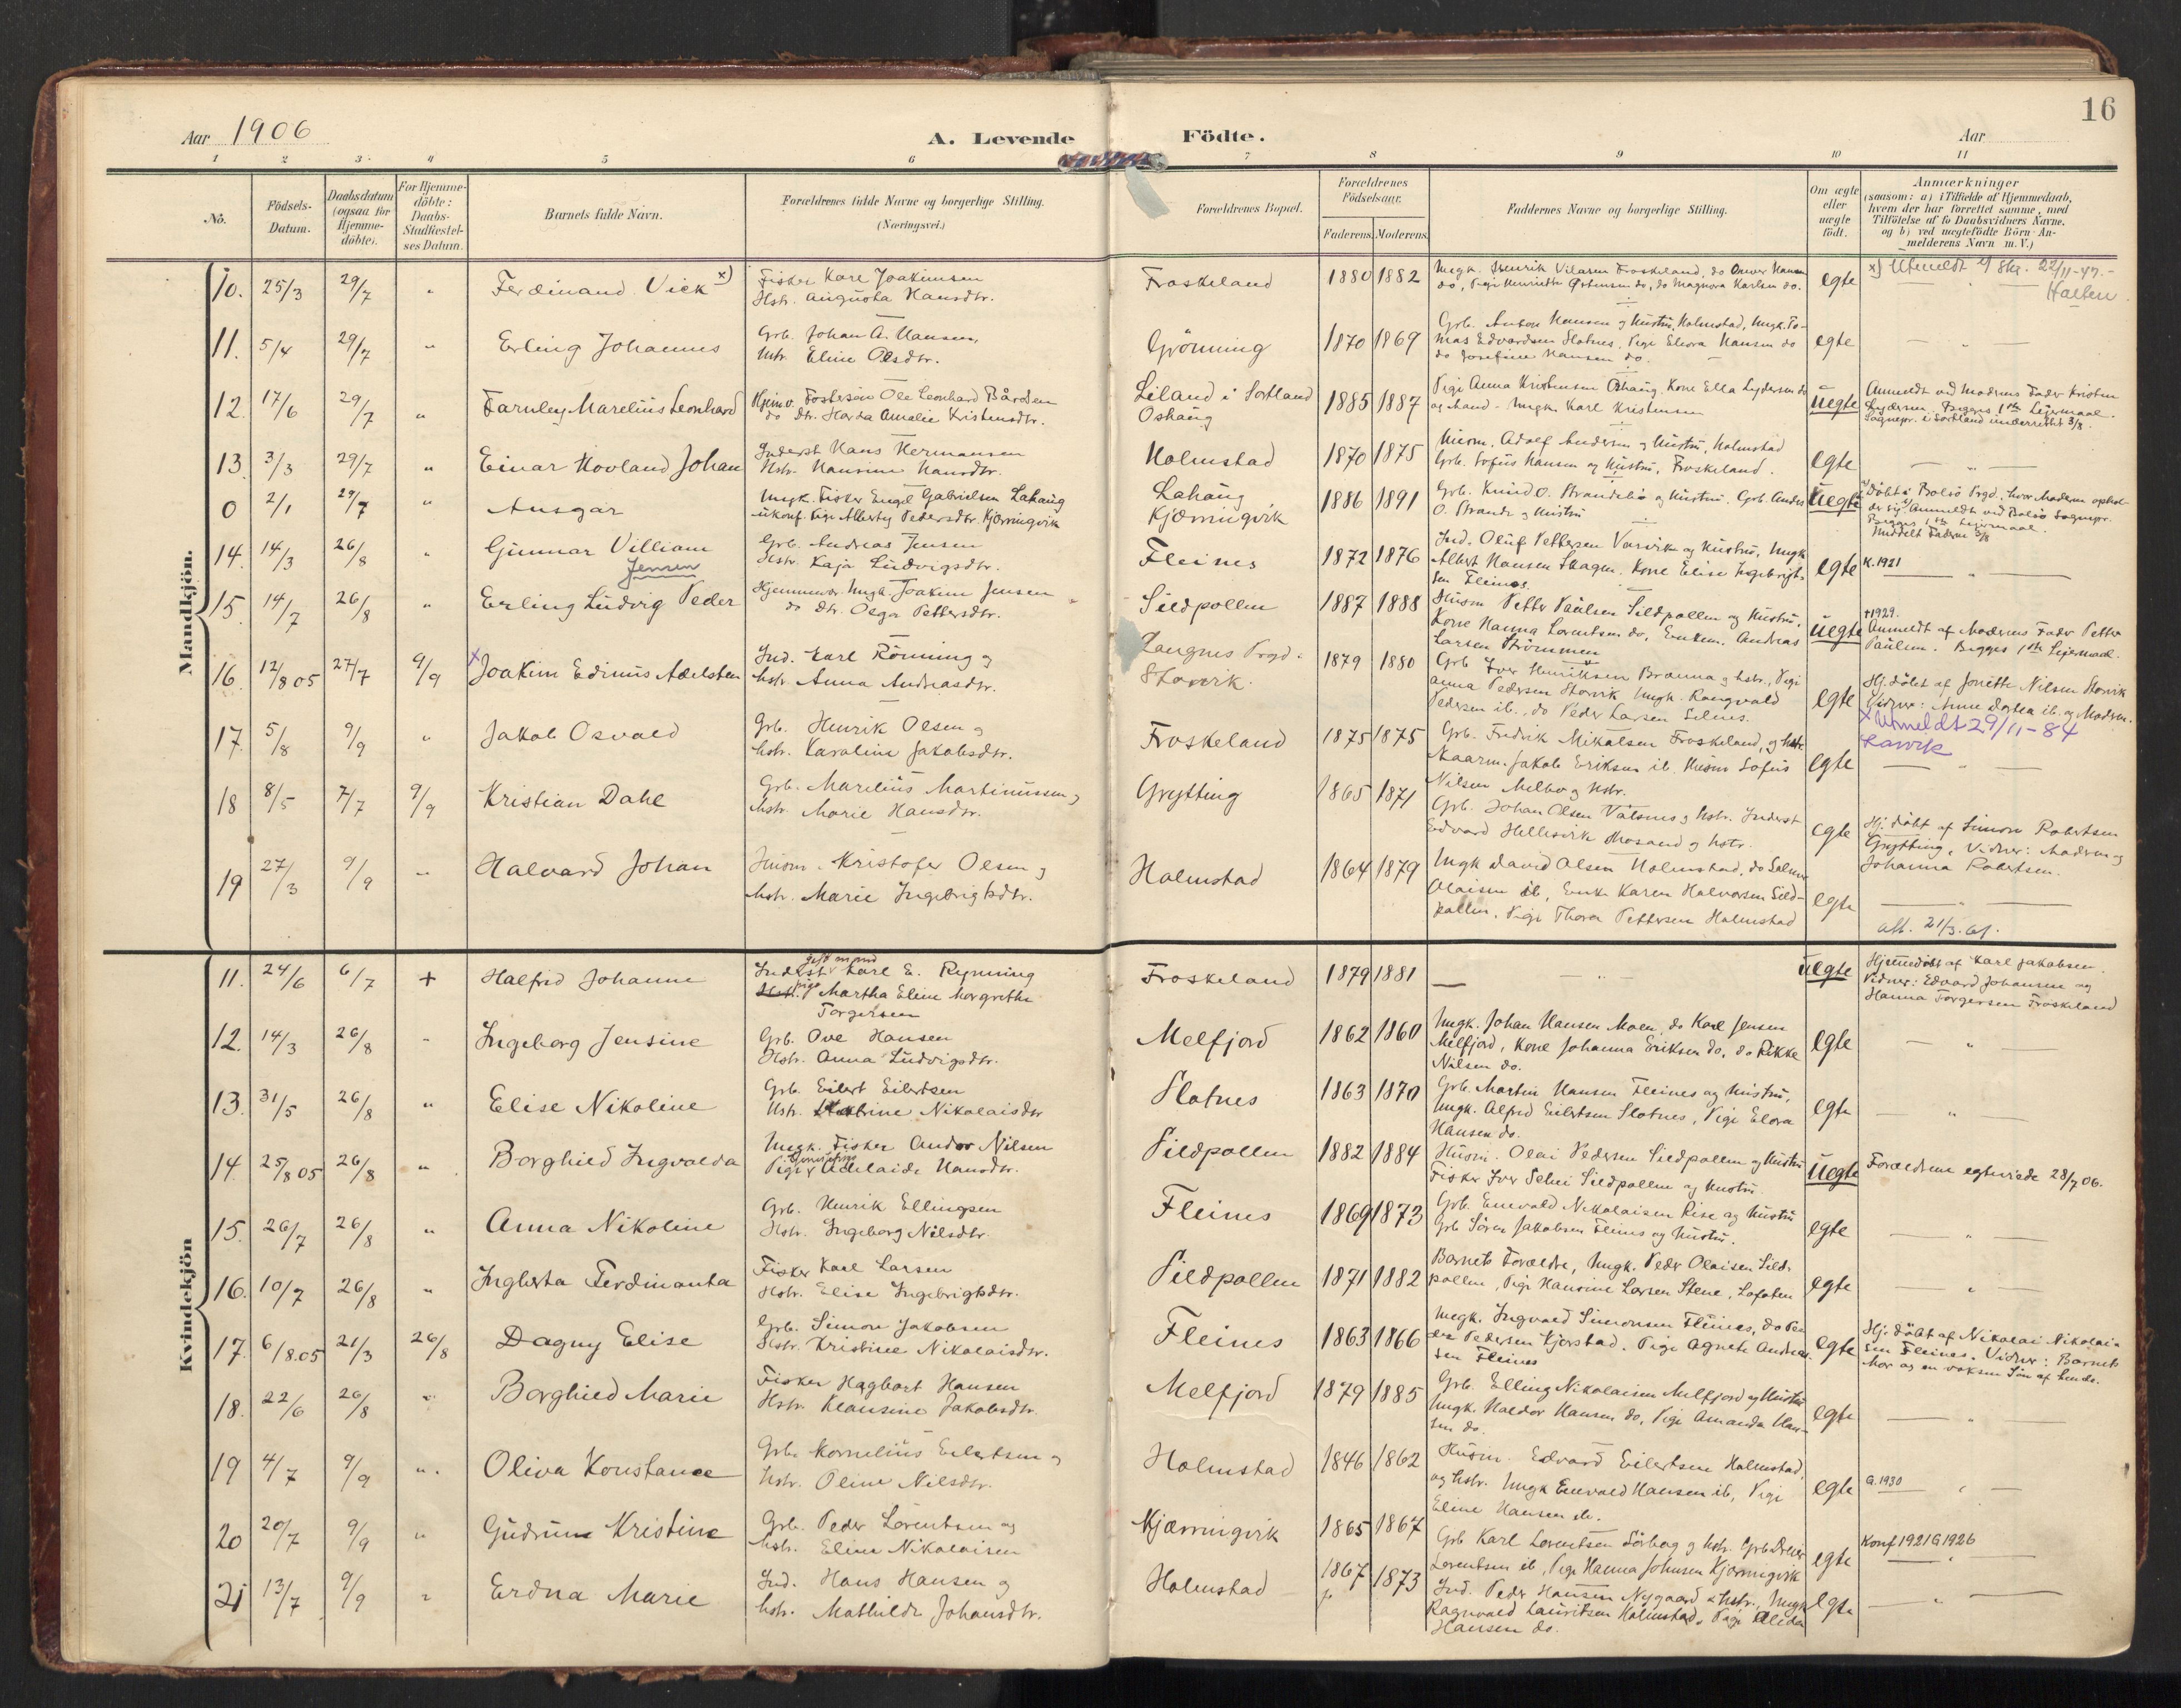 16
Aar 1906
A. Levende Födte.
Aar
1 2 3 4 5 6 7 8 9 10 11
No.
Födsels-Datum.
Daabsdatum (ogsaa for Hjemme-döbte).
For Hjemme-döbte: Daabs-Stadfæstel-ses Datum.
Barnets fulde Navn.
Forældrenes fulde Navne og borgerlige Stilling.
(Næringsvei.)
Forældrenes Bopæl.
Forældrenes Födselsaar.
Faderens. Moderens.
Faddernes Navne og borgerlige Stilling.
Om ægte eller uægte født.
Anmærkninger
(saasom: a) i Tilfælde af Hjemmedaab,
hvem der har forrettet samme, med
Tilföielse af to Daabsvidners Navne.
og b) ved uægtefödte Börn An-
melderens Navn m. V.)
Mandkjön.
10. 25/3 29/7 " Ferdinand Vick x)
Fisker Karl Joakimsen
Hstr. Augusta Hansdtr.
Froskeland 1880 1882
Ungk. Henrik Vilasen Froskeland, do Hansen
do, Pige Henriette Östensen do, do Magnora Karlsen do.
egte
x) Utmeldt 22/11-47.-
11. 5/4 29/7 " Erling Johannes
Grb. Johan A. Hansen,
Hstr. Eline Olsdtr.
Grönning 1870 1869
Grb. Anton Hansen og Hustru, Holmstad, Ungk. To-
mas Edvardsen Slotnes, Pige Elvora Hansen do
do Josefine Hansen do.
egte
12. 17/6 29/7 " Farnley Marelius Leonhard
Hjemv. Fostersön Ole Leonhard Bårdsen
do dtr. Harda Amalie Kristensdtr.
Liland i Sortland
Oshaug
1885 1887
Pige Anna Kristensen Oshaug, Kone Ella Lydersen do
og Mand - Ungk. Karl Kristensen
uegte
Anmeldt ved Moderens Fader Kristen
Lydersen. Begges 1ste Leiermaal.
Sognepr. i Sortland underrettet 3/8.
13. 3/3 29/7 " Einar Hovland Johan
Inderst Hans Hermansen
Hstr. Hansine Hansdtr.
Holmstad 1870 1875
Husm. Adolf Andersen og Hustru, Holmstad
Grb. Sofus Hansen og Hustru, Froskeland.
egte
0 2/1 29/7 " Ansgar
Ungk. Fisker Engel Gabrielsen Lahaug
ukonf. Pige Alberty Pedersdtr. Kjørningvik
Lahaug
Kjørningvik
1886 1891
Grb. Knud O. Strandebö og Hustru. Grb. Anders
O. Strande og Hustru
uegte
Döbt i Bolsö Prgd., hvor Moderen ophol-
der sig. Anmeldt ved Bolsö Sognepr.
Begges 1ste Leiermaal.
14. 14/3 26/8 " Gunnar Villiam
Jensen
Grb. Andreas Jensen
Hstr. Kaja Ludvigsdtr.
Fleines 1872 1876
Ind. Oluf Pettersen Varvik og Hustru, Ungk
Albert Hansen Skagen. Kone Elise Ingebrigt-
sen Fleines.
egte
K. 1921
15. 14/7 26/8 " Erling Ludvig Peder
Hjemmev. Ungk. Joakim Jensen
do dtr. Olga Pettersdtr.
Sildpollen 1887 1888
Husm Petter Paulsen Sildpollen og Hustru,
Kone Hanna Lorentsen do, Enkem. Andreas
Larsen Strömmen
uegte
+1929.
Anmeldt af Moderens Fader Petter
Paulsen. Begges 1ste Leiermaal.
16. 12/8 05 27/7 9/9 x Joakim Edinius Adelsten
Ind. Karl Rönning og
hstr. Anna Andreasdtr.
Langnes Prgd.
Storvik.
1879 1880
Grb Iver Henriksen Bramma og hstr., Pige
Anna Pedersen Storvik Ungk. Rangvald
Pedersen ib., do Peder Larsen Selnes.
egte
Hj. döbt af Jonette Nilsen Storvik
Vidner: Anne Dortea ib. og Moderen.
x Utmeldt 29/11-84
17. 5/8 9/9 " Jakob Osvald
Grb. Henrik Olsen og
hstr. Karoline Jakobsdtr.
Froskeland 1875 1875
Grb. Fredrik Mikalsen Froskeland, og hstr
Naarm. Jakob Eriksen ib. Husm Sofus
Nilsen Melbo og hstr.
egte
18 8/5 7/7 9/9 Kristian Dahl
Grb. Marelius Martinussen og
hstr. Marie Hansdtr.
Grytting 1865 1871
Grb. Johan Olsen Valsnes og hstr. Inderst
Edvard Hellesvik Mosand og hstr.
egte
Hj. döbt af Simon Robertsen
Grytting. Vidner: Moderen og
Johanna Robertsen.
19 27/3 9/9 " Halvard Johan
Husm. Kristofer Olsen og
hstr. Marie Ingebrigtsdtr.
Holmstad 1864 1879
Ungk David Olsen Holmstad, do Selmer
Olaisen ib, Enke Karen Halvorsen Sild-
pollen, Pige Thora Pettersen Holmstad
egte
att. 21/3.61.
Kvindekjön
11. 24/6 6/7 + Halfrid Johanne
gift mand
Inderst Karl E. Rynning
Pige Martha Eline Margrethe
Torgersen
Froskeland 1879 1881
uegte
Hjemmedöbt af Karl Jakobsen.
Vidner: Edvard Johansen og
Hanna Torgersen Froskeland
12. 14/3 26/8 " Ingeborg Jensine
Grb. Ove Hansen
Hstr. Anna Ludvigsdtr.
Melfjord 1862 1860
Ungk. Johan Hansen Moen, do Karl Jensen
Melfjord, Kone Johanna Eriksen do, do Rikke
Nilsen do.
egte
13. 31/5 26/8 " Elise Nikoline
Grb. Eilert Eilertsen
Hstr. Katrine Nikolaisdtr
Slotnes 1863 1870
Grb. Martin Hansen Fleines og Hustru,
Ungk. Alfred Eilertsen Slotnes, Pige Elvora
Hansen do.
egte
14. 25/8 05 26/8 " Borghild Ingvalda
Ungk. Fisker Andor Nilsen
Pige Adelaide Hansdtr.
Sildpollen 1882 1884
Husm. Olai Pedersen Sildpollen og Hustru
Fisker Iver Selnes Sildpollen og Hustru.
uegte
Forældrene egteviede 28/7 06.
15. 26/7 26/8 " Anna Nikoline
Grb. Henrik Ellingsen
Hstr. Ingeborg Nilsdtr.
Fleines 1869 1873
Grb. Enevald Nikolaisen Rise og Hustru
Grb Sören Jakobsen Fleines og Hustru.
egte
16. 10/7 26/8 " Ingberta Ferdinanta
Fisker Karl Larsen
Hstr. Elise Ingebrigtsdtr.
Sildpollen 1871 1882
Barnets Forældre, Ungk. Peder Olaisen Sild-
pollen, Pige Hansine Larsen Stene, Lofoten
egte
17. 6/8.05 21/3 26/8 Dagny Elise
Grb. Simon Jakobsen
Hstr. Kristine Nikolaisdtr.
Fleines 1863 1866
Ungk. Ingvald Simonsen Fleines, do Pe-
der Pedersen Kjorstad. Pige Agnete Andrea-
sen Fleines
egte
Hj. döbt af Nikolai Nikolai-
sen Fleines. Vidner: Barnets
Mor og en voksen Sön af hende.
18. 22/6 26/8 " Borghild Marie
Fisker Hagbart Hansen
Hstr. Klausine Jakobsdtr
Melfjord 1879 1885
Grb. Elling Nikolaisen Melfjord og Hustru
Ungk. Haldor Hansen do, Pige Amanda Han-
sen do.
egte
19 4/7 9/9 " Oliva Konstance
Grb. Kornelius Eilertsen og
hstr. Oline Nilsdtr.
Holmstad 1846 1862
Husm. Edvard Eilertsen Holmstad,
og hstr. Ungk Enevald Hansen ib, Pige
Eline Hansen ib.
egte
G. 1930
20 20/7 9/9 " Gudrun Kristine
Grb. Peder Lorentsen og
hstr. Eline Nikolaisen
Kjørningvik 1865 1867
Grb Karl Lorentsen Sörberg og hstr. Grb.
Lorentsen ib, Pige Hanna Johnsen Kjørningvik
egte
Konf 1921 G 1926
21 13/7 9/9 " Erdna Marie
Ind. Hans Hansen og
hstr. Mathilde Johansdtr.
Holmstad 1867 1873
Ind. Peder Hansen Nygaard & hstr., Ungk
Ragnvald Lauritsen Holmstad, Pige Elida
Hansen do.
egte